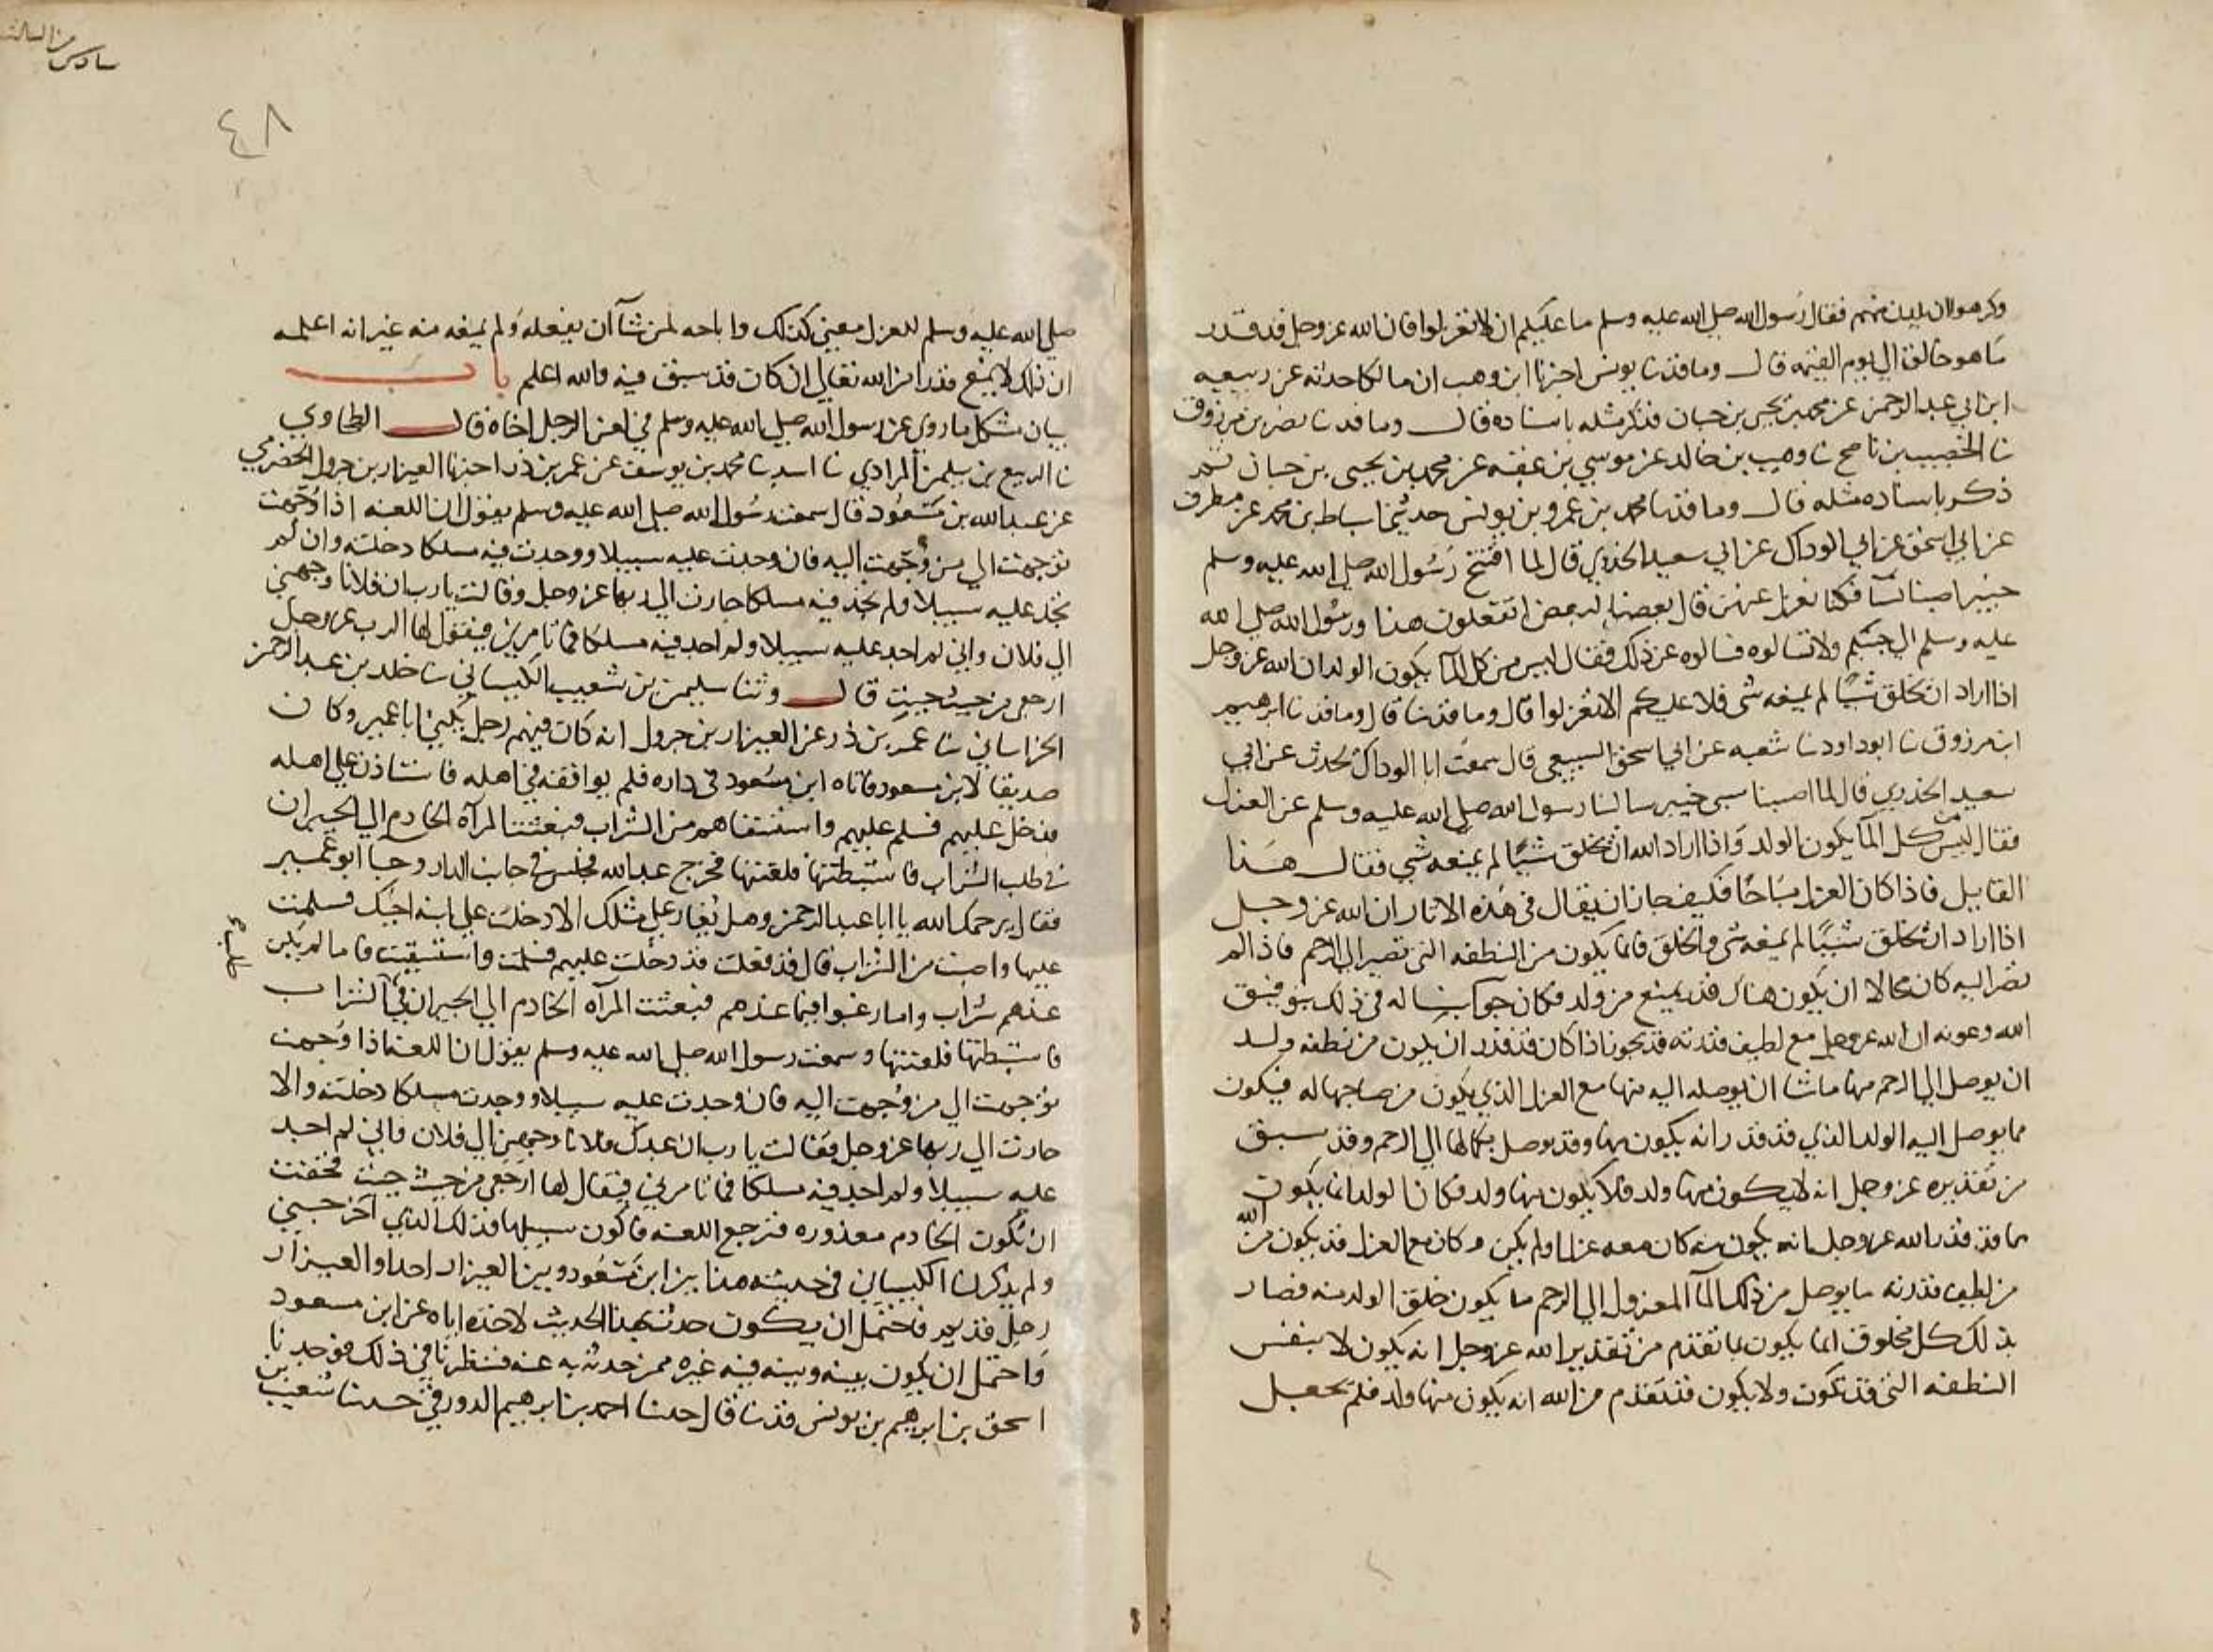 وكرهوا ان يلدن منهم فقال رسول الله صلي الله عليه وسلم ما عليكم ان لا تعزلوا فان الله عز وجل قد قدر
ما هو خالق الي يوم القيمه قال وما قد نا يونس اخبرنا ابن وهب ان مالكا حدثه عن ربيعه
ابن ابي عبد الرحمن عن محمد بن يحيى بن حبان فذكر مثله باسناده قال وما قد نا نصر بن مرزوق
نا الخصيب بن ناصح نا وهيب بن خالد عن موسي بن عقبه عن محمد بن يحيى بن حبان ثم
ذكر باسناده مثله قال وما قد نا محمد بن عمرو بن يونس حدثني اسباط بن محمد عن مطرف
عن ابي اسحق عن ابي الوداك عن ابي سعيد الخدري قال لما افتتح رسول الله صلي الله عليه وسلم
خيبر اصبنا نسآ فكنا نعزل عنهن قال بعضنا لبعض اتفعلون هذا ورسول الله صلي الله
عليه وسلم الي جنبكم ولا تسالوه فسالوه عن ذلك فقال ليس من كل المآ يكون الولد ان الله عز وجل
اذا اراد ان يخلق شيًا لم يمنعه شي فلا عليكم الا تعزلوا قال وما قد نا قال وما قد نا ابرهيم
ابن مرزوق نا ابو داود نا شعبه عن ابي اسحق السبيعي قال سمعت ابا الوداك يحدث عن ابي
سعيد الخدري قال لما اصبنا سبي خيبر سالنا رسول الله صلي الله عليه وسلم عن العزل
فقال ليس من كل المآ يكون الولد واذا اراد الله ان يخلق شيًا لم يمنعه شي فقال هنا
القايل فاذا كان العزل مباحًا فكيف جاز ان يقال في هذه الاثار ان الله عز وجل
اذا اراد ان يخلق شيًا لم يمنعه شي والخلق فانما يكون من النطفه التي تصير الي الرحم فاذا لم
تصر اليه كان محالا ان يكون هناك قدر يمنع من ولد فكان جوابنا له في ذلك بتوفيق
الله وعونه ان الله عز وجل مع لطيف قدرته قد يجوز اذا كان قد قدر ان يكون من نطفه ولد
ان يوصل الي الرحم منها ما شا ان يوصله اليه منها مع العزل الذي يكون من صاحبها له فيكون
مما يوصل اليه الولد الذي قد قدر انه يكون منها وقد يوصل بكمالها الي الرحم وقد سبق
من تقديره عز وجل انه لا يكون منها ولد فلا يكون منها ولد فكان الولد انما يكون
بما قد قدر الله عز وجل انه يكون منه كان معه عزل او لم يكن وكان مع العزل قد يكون من الله
من لطيف قدرته ما يوصل من ذلك المآ المعزول الي الرحم ما يكون خلق الولد منه فصار
بذلك كل مخلوق انما يكون بما تقدم من تقدير الله عز وجل انه يكون لا بنفس
النطفه التي قد تكون ولا يكون فتقدم من الله انه يكون منها ولد فلم يجعل
سادس من الثالث
٤٨
صلي الله عليه وسلم للعزل معنى كذلك واباحه لمن شآ ان يفعله ولم يمنعه منه غير انه اعلمه
ان ذلك لا يمنع قدرا من الله تعالي ان كان قد سبق فيه والله اعلم باب
بيان مشكل ما روي عن رسول الله صلي الله عليه وسلم في لعن الرجل اخاه قال الطحاوي
نا الربيع بن سليمن المرادي نا اسد نا محمد بن يوسف عن عمر بن ذر اخبرنا العيزار بن جرول الحضرمي
عن عبد الله بن مسعود قال سمعت رسول الله صلي الله عليه وسلم يقول ان اللعنه اذا وُجّهت
توجهت الي من وُجّهت اليه فان وجدت عليه سبيلا ووجدت فيه مسلكا دخلته وان لم
تجد عليه سبيلا ولم تجد فيه مسلكا حارت الي ربها عز وجل وقالت يا رب ان فلانا وجهني
الي فلان واني لم اجد عليه سبيلا ولم اجد فيه مسلكا فما تامرني فيقول لها الرب عز وجل
ارجعي من حيث جيت قال وثنا سليمن بن شعيب الكيساني نا خلد بن عبد الرحمن
الخراساني نا عمر بن ذر عن العيزار بن جرول انه كان فيهم رجل يكني ابا عمير وكان
صديقا لابن مسعود فاتاه ابن مسعود في داره فلم يوافقه في اهله فاستاذن علي اهله
فدخل عليهم فسلم عليهم واستسقاهم من الشراب فبعثت المرآه الخادم الي الجيران
في طلب الشراب فاستبطتها فلعنتها فخرج عبد الله فجلس في جانب الدار وجآ ابو عمير
فقال يرحمك الله يا ابا عبد الرحمن وهل يُغار علي مثلك الا دخلت علي ابنه اخيك فسلمت
عليها واصبت من الشراب قال قد فعلت قد دخلت عليهم فسلمت واستسقيت فاما لم يكن
عندهم شراب واما رغبوا فيما عندهم فبعثت المرآه الخادم الي الجيران في الشراب
فاستبطتها فلعنتها وسمعت رسول الله صلي الله عليه وسلم يقول ان اللعنه اذا وُجهت
توجهت الي من وُجهت اليه فان وجدت عليه سبيلا ووجدت مسلكا دخلته والا
حارت الي ربها عز وجل فقالت يا رب ان عبدك فلانا وجهني الي فلان واني لم اجد
عليه سبيلا ولم اجد فيه مسلكا فما تامرني فيقال لها ارجعي من حيث جيت فخفت
ان تكون الخادم معذوره فترجع اللعنه فاكون سبيلها فذلك الذي اخرجني
ولم يذكر لنا الكيساني في حديثه هذا بين ابن مسعود وبين العيزار احدا والعيزار
رجل قديم فاحتمل ان يكون حدث بهذا الحديث لاخذه اياه عن ابن مسعود
واحتمل ان يكون بينه وبينه فيه غيره ممن حدثه به عنه فنظرنا في ذلك فوجدنا
اسحق بن ابرهيم بن يونس قد نا قال حدثنا احمد بن ابرهيم الدورقي حدثنا شعيب بن